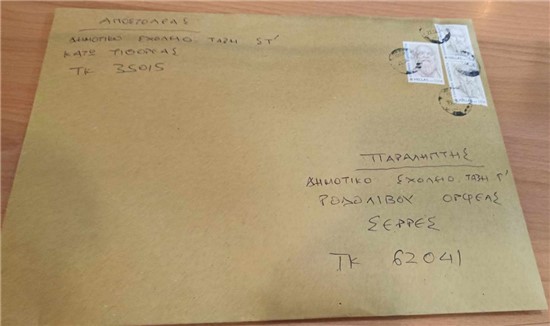 ΑΠΟΣΤΟΛΕΑΣ
ΔΗΜΟΤΙΚΟ ΣΧΟΛΕΙΟ ΤΑΞΗ ΣΤ'
ΚΑΤΩ ΤΙΘΟΡΕΑΣ
ΤΚ 35015
ΠΑΡΑΛΗΠΤΗΣ
ΔΗΜΟΤΙΚΟ ΣΧΟΛΕΙΟ ΤΑΞΗ Γ'
ΡΟΔΟΛΙΒΟΥ ΟΡΦΕΑΣ
ΣΕΡΡΕΣ
ΤΚ 62041